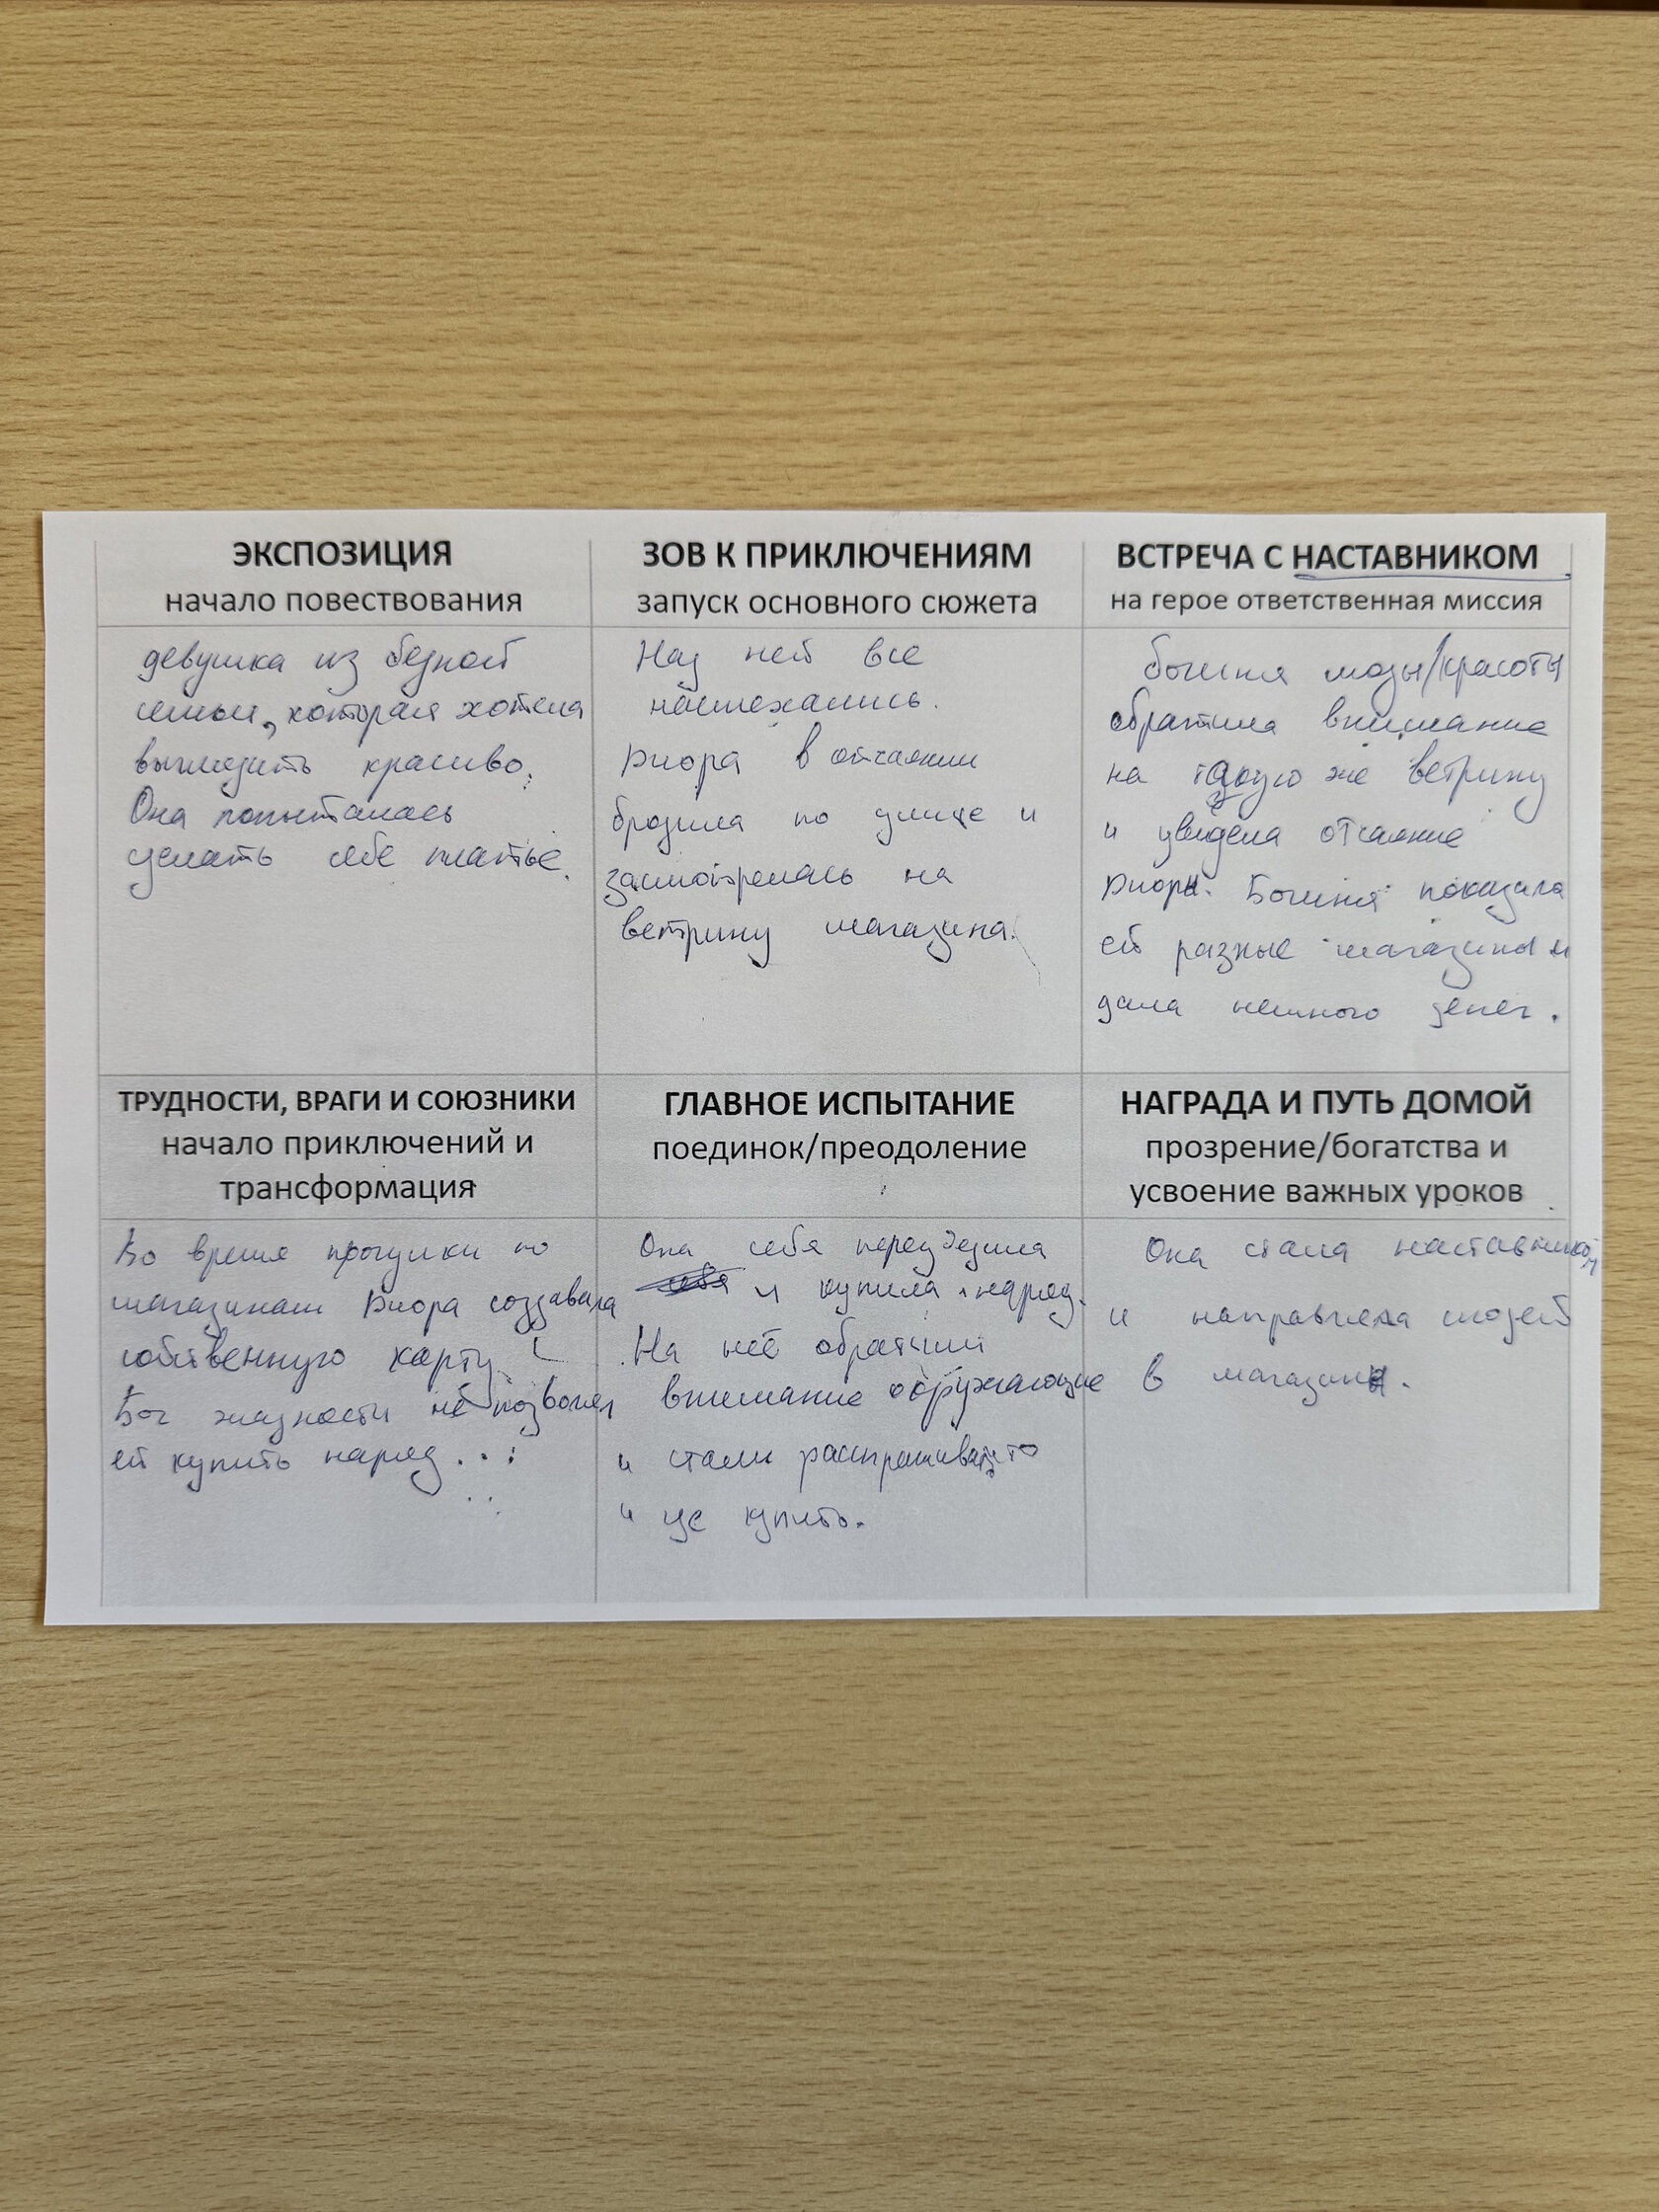 ЭКСПОЗИЦИЯ
начало повествования
девушка из бедной
семьи, которая хотела
выглядить красиво.
Она попыталась
сделать себе платье.
ЗОВ К ПРИКЛЮЧЕНИЯМ
запуск основного сюжета
Над ней все
насмехались.
Диора в отчаянии
бродила по улице и
засмотрелась на
ветрину магазина.
ВСТРЕЧА С НАСТАВНИКОМ
на герое ответственная миссия
богиня моды/красоты
обратила внимание
на такую же ветрину
и увидела отчаяние
Диоры. Богиня показала
ей разные магазины и
дала немного денег.
ТРУДНОСТИ, ВРАГИ И СОЮЗНИКИ
начало приключений и
трансформация
Во время прогулки по
магазинам Диора создавала
собственную карту
Бог жадности не позволял
ей купить наряд...
ГЛАВНОЕ ИСПЫТАНИЕ
поединок/преодоление
Она себя переубедила
и купила наряд.
На неё обратили
внимание окружающие
и стали расспрашивать
и где купить.
НАГРАДА И ПУТЬ ДОМОЙ
прозрение/богатства и
усвоение важных уроков
Она стала наставником
и направляла людей
в магазины.